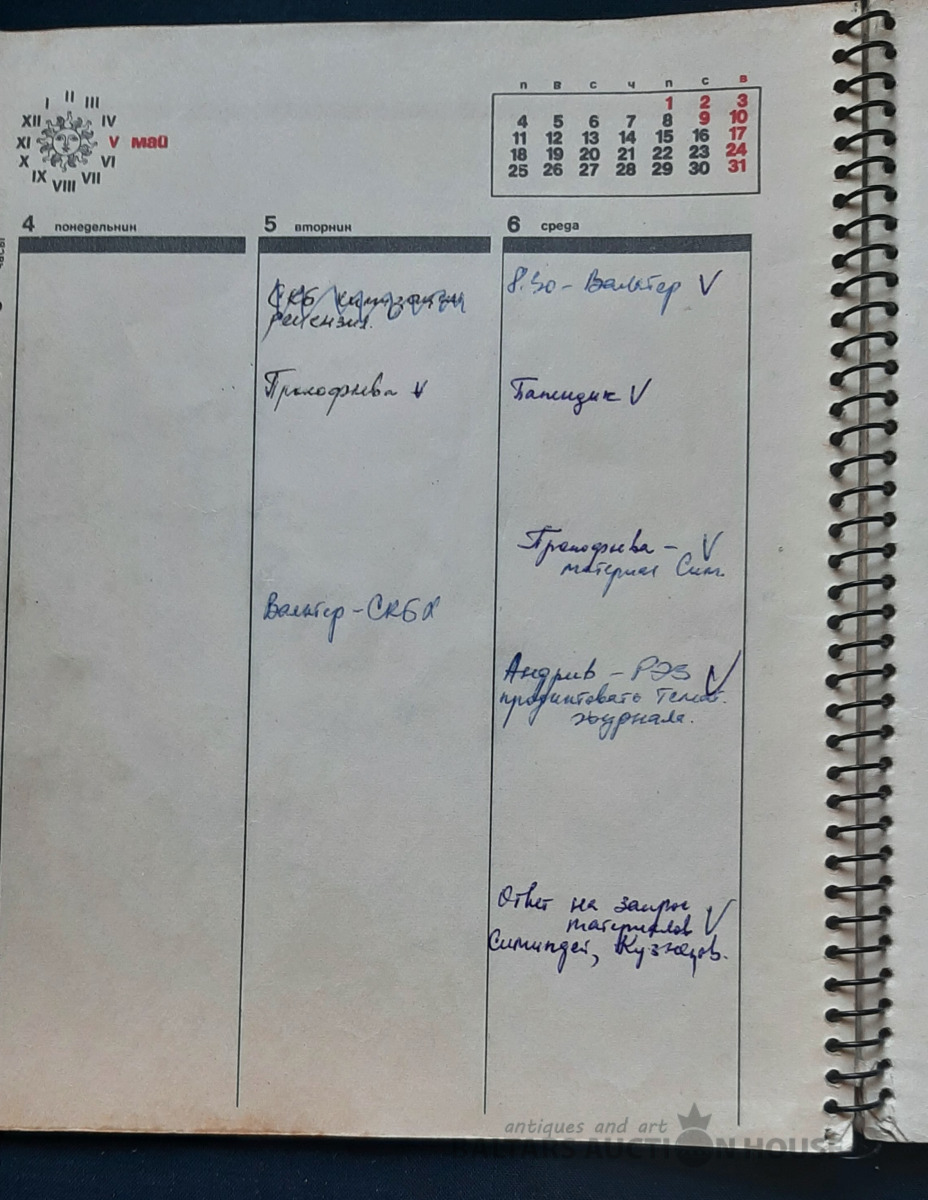 I II III
XII IV
XI V май
X VI
IX VIII VII
п в с ч п с в
1 2 3
4 5 6 7 8 9 10
11 12 13 14 15 16 17
18 19 20 21 22 23 24
25 26 27 28 29 30 31
4 понедельник
5 вторник
СКБ
рецензия.
Прокофьева V
Вальтер - СКБ
6 среда
8.30 - Вальтер V
V
Прокофьева - V
материал Сим.
Андрив - РЭЗ V
продиктовать
журнала.
Ответ на запрос
материалов V
Кузнецов.
antiques and art
BALTARS AUCTION HOUSE